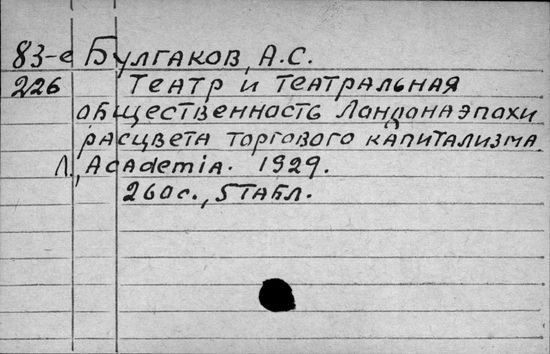 83-е Булгаков, А.С.
226 Театр и театральная
общественность Лондона эпохи
расцвета торгового капитализма
Л., Academia. 1929.
260с., 5 табл.